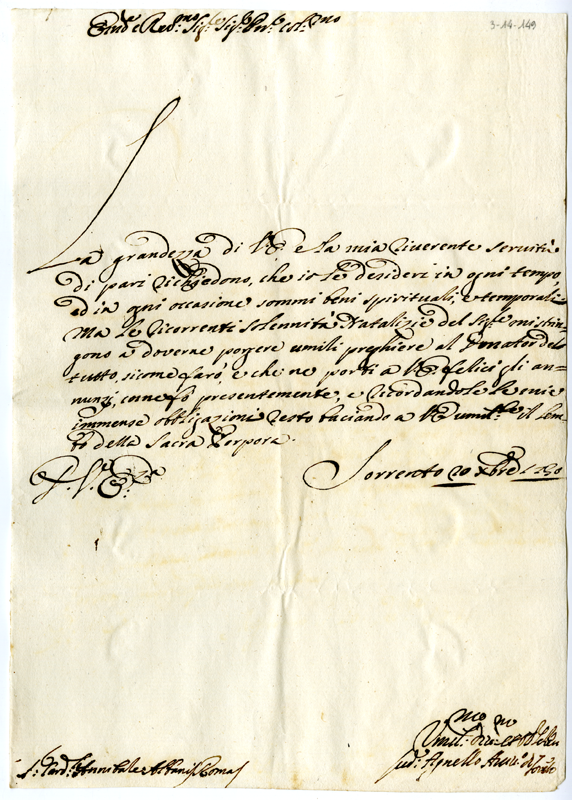 Em.mo e Rev.mo Sig.re Sig.r P.ron Col.mo
3-14-149
La grandezza di V.E. e la mia riverente servitù
di pari richiedono, che io Le desideri in ogni tempo,
ed in ogni occasione sommi beni spirituali, e temporali.
Ma le ricorrenti solennità Natalizie del Sig.re mi strin-
gono a doverne porgere umili preghiere al Donator del
tutto, sicome farò, e che ne porti a V.E. felici gli an-
nunzi, come fò presentemente, e ricordandole le mie
immense obbligazioni resto baciando a V.E. umil.te il Lem-
bo della Sacra Porpora.
Di V.E.
Sorrento 20 Xbre
Umil.mo
S.r Card. Annibale Albani Roma